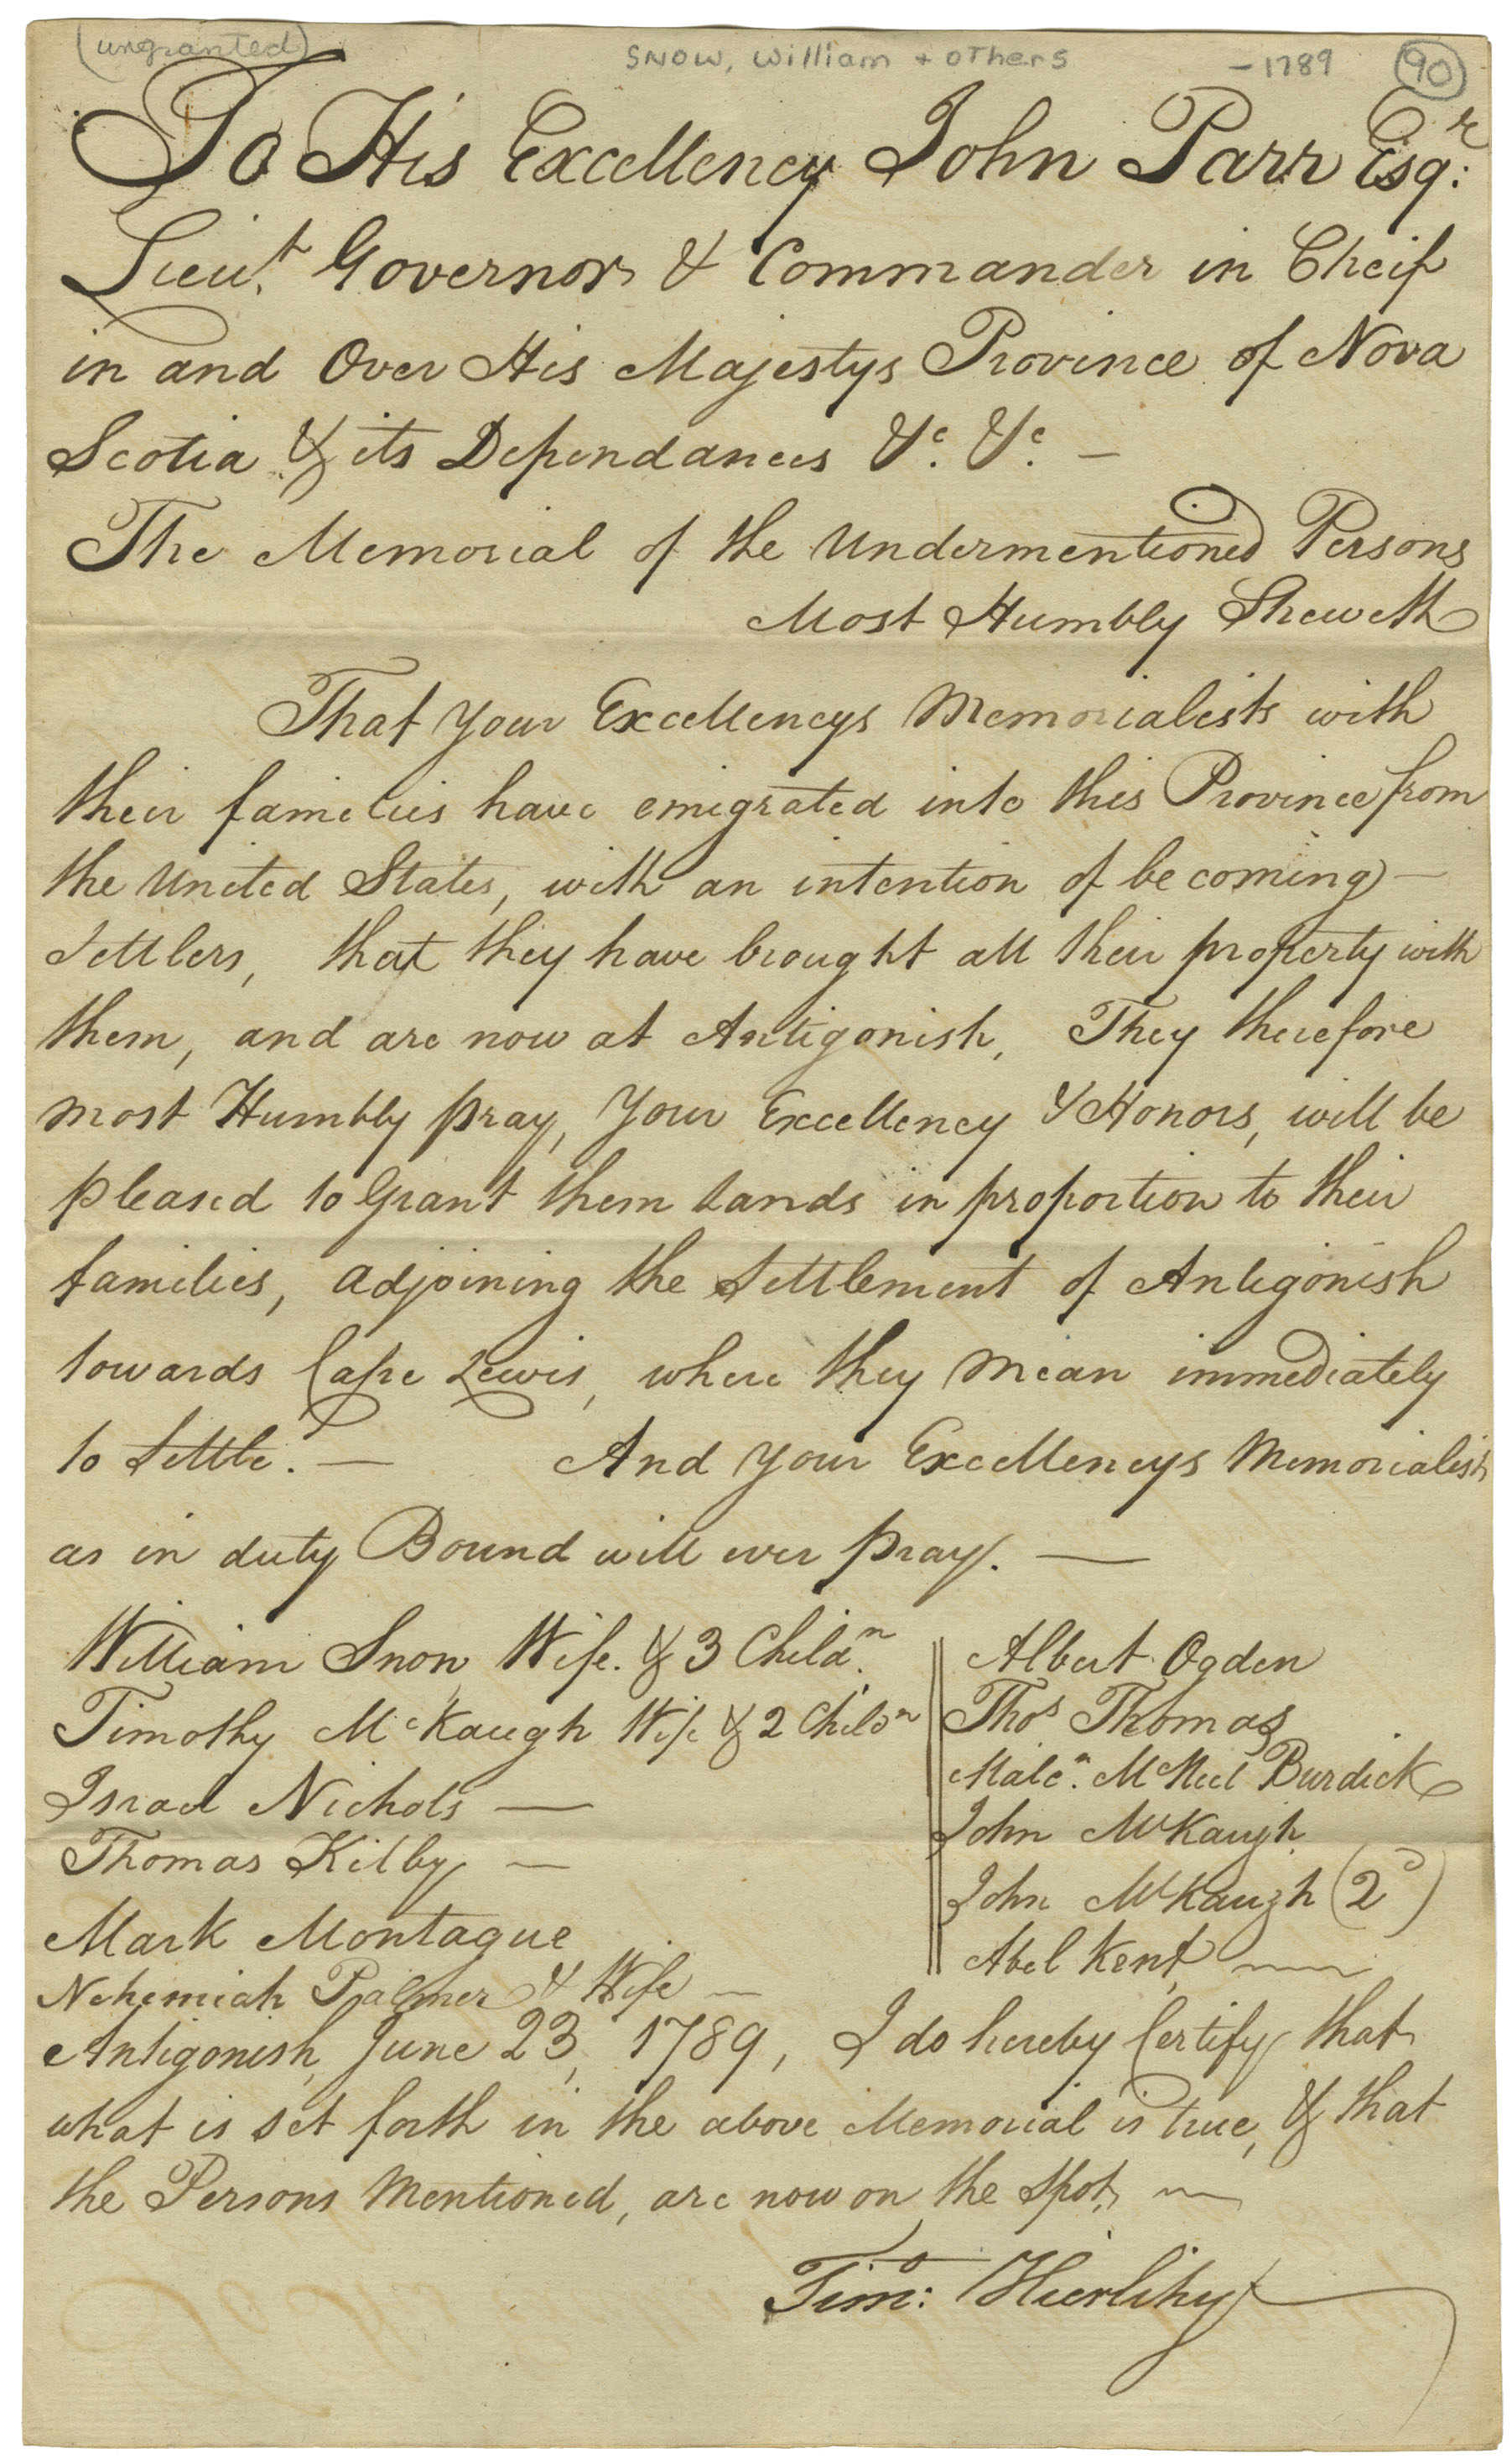 (ungranted) SNOW, William + others -1789 90
To His Excellency John Parr Esqr:
Lieut. Governor & Commander in Cheif
in and Over His Majestys Province of Nova
Scotia & its Dependances &c. &c. —
The Memorial of the Undermentioned Persons
Most Humbly Sheweth
That your Excellencys Memorialists with
their families have emigrated into this Province from
the United States, with an intention of becoming —
Settlers, that they have brought all their property with
them, and are now at Antigonish, They therefore
most Humbly pray, Your Excellency & Honors, will be
pleased to Grant them Lands in proportion to their
families, adjoining the Settlement of Antigonish
towards Cape Lewis, where they mean immediately
to Settle. — And your Excellencys Memorialists
as in duty Bound will ever pray. —
William Snow Wife. & 3 Childn.
Timothy McKaugh Wife & 2 Childn
Israel Nichols —
Thomas Kilby —
Mark Montague
Nehemiah Palmer & Wife —
Albert Ogden
Thos Thomas
Malcm. McNeil Burdick
John McKaugh
John McKaugh (2d)
Abel Kent
Antigonish, June 23, 1789, I do hereby Certify that
what is set forth in the above Memorial is true, & that
the Persons Mentioned, are now on the spot,
Timo: Hierlihy